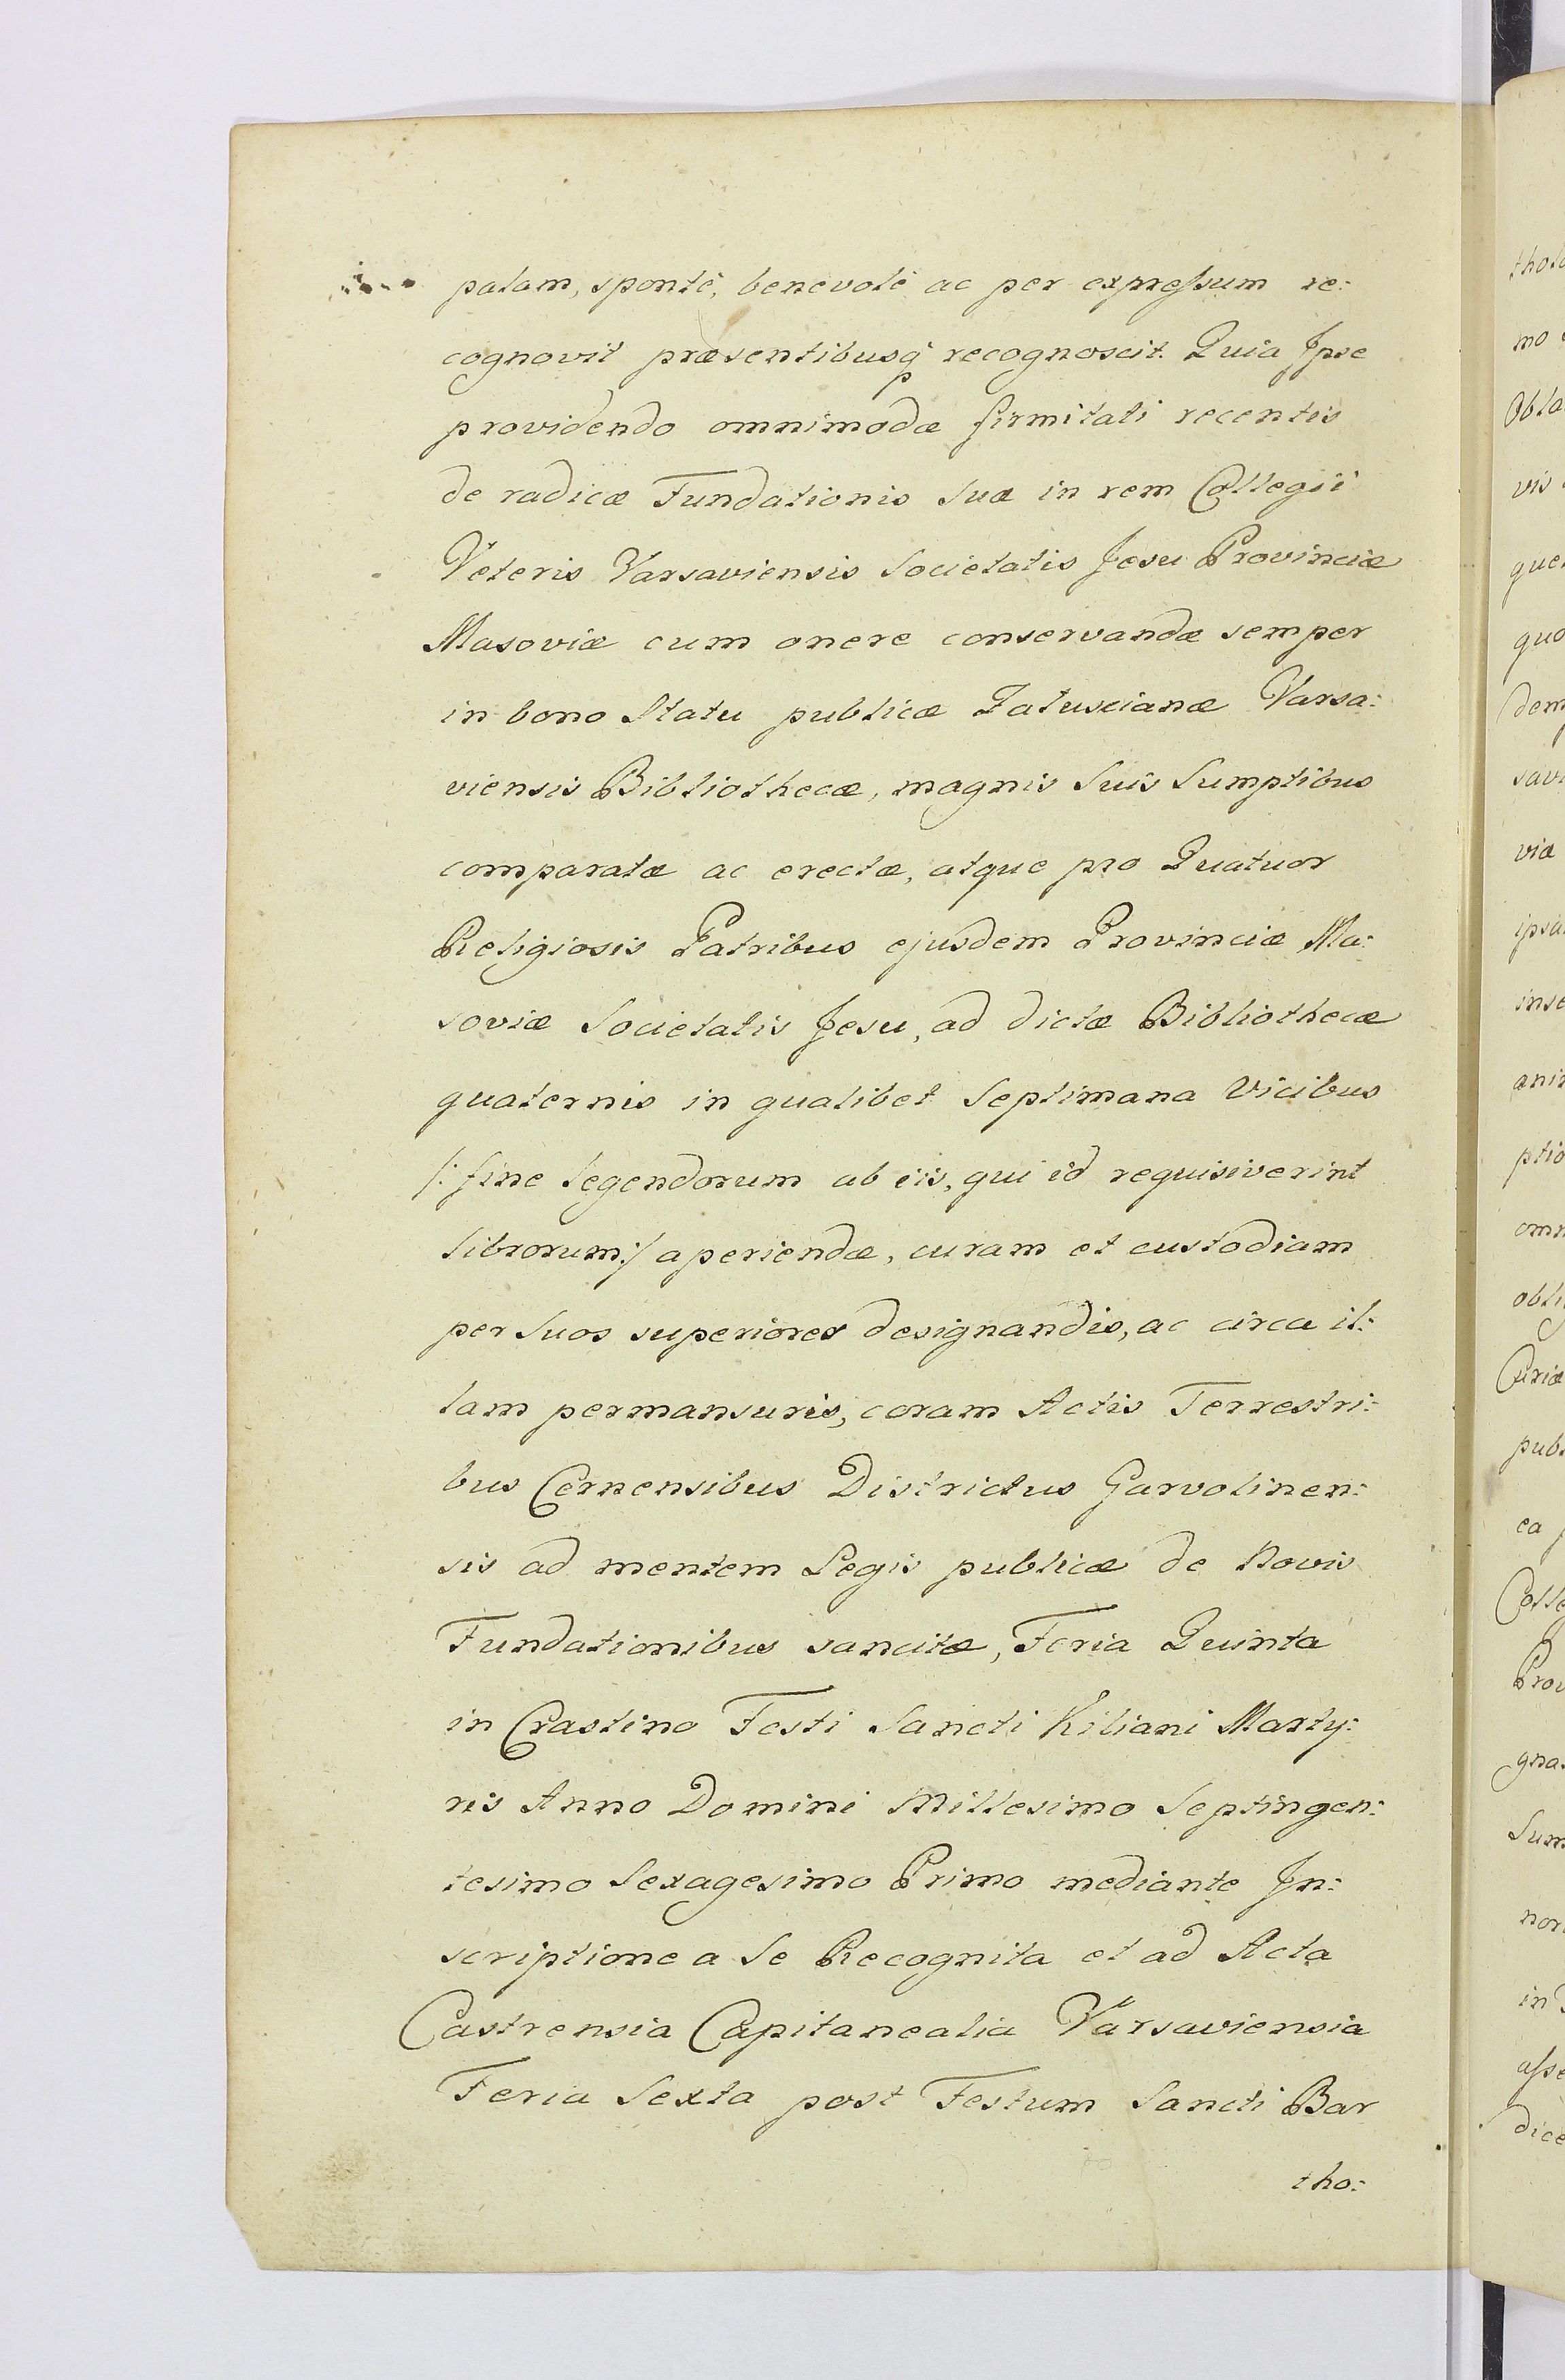 palam, spontè, benevolè ac per expreſsum re:
cognovit præsentibusq́ recognoscit. Quia Jpse
providendo omnimodæ firmitati recentis
de radice Fundationis suæ in rem Collegii
Veteris Varsaviensis Societatis Jesu Provinciæ
Masoviæ cum onere conservandæ semper
in bono Statu publicæ Zaluscianæ Varsa:
viensis Bibliothecæ, magnis Suis Sumptibus
comparatæ ac erectæ, atque pro Quatuor
Religiosis Patribus ejusdem Provinciæ Ma:
soviæ Societatis Jesu, ad dictæ Bibliothecæ
quaternis in qualibet Septimana Vicibus
/: fine legendorum ab iis, qui id requisiverint
librorum :/ aperiendæ, curam et custodiam
per Suos superiores designandis, ac circa il:
lam permansuris, coram Actis Terrestri:
bus Cernensibus Districtus Garvolinen:
sis ad mentem Legis publicæ de Novis
Fundationibus sancitæ, Feria Quinta
in Crastino Festi Sancti Kiliani Marty:
ris Anno Domini Millesimo Septingen:
tesimo Sexagesimo Primo mediante Jn:
scriptione a Se Recognita et ad Acta
Castrensia Capitanealia Varsaviensia
Feria Sexta post Festum Sancti Bar
tho: